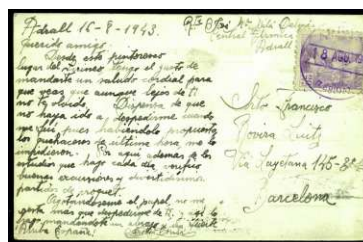 Adrall 16-8-1943.
Querido amigo:
Desde este pintoresco
lugar del Pirineo tengo el gusto de
mandarte un saludo cordial para
que veas que aunque lejos de ti
no te olvido. Dispensa de que
no haya ido a despedirme cuando
me fui pues habiéndolo propuesto
los quehaceres de última hora me lo
impidieron. En aqui ademas de los
estudios que hago cada día
buenas excursiones y divertidísimos
partidos de croquet.
Agotándoseme el papel no me
queda más que despedirme de
mandándote un abrazo
¡Arriba España!
Rte José Mª
Central Eléctrica
Adrall
18 AGO.
Sr. Francisco
Rovira
Vía Layetana 145-3º-2ª
Barcelona